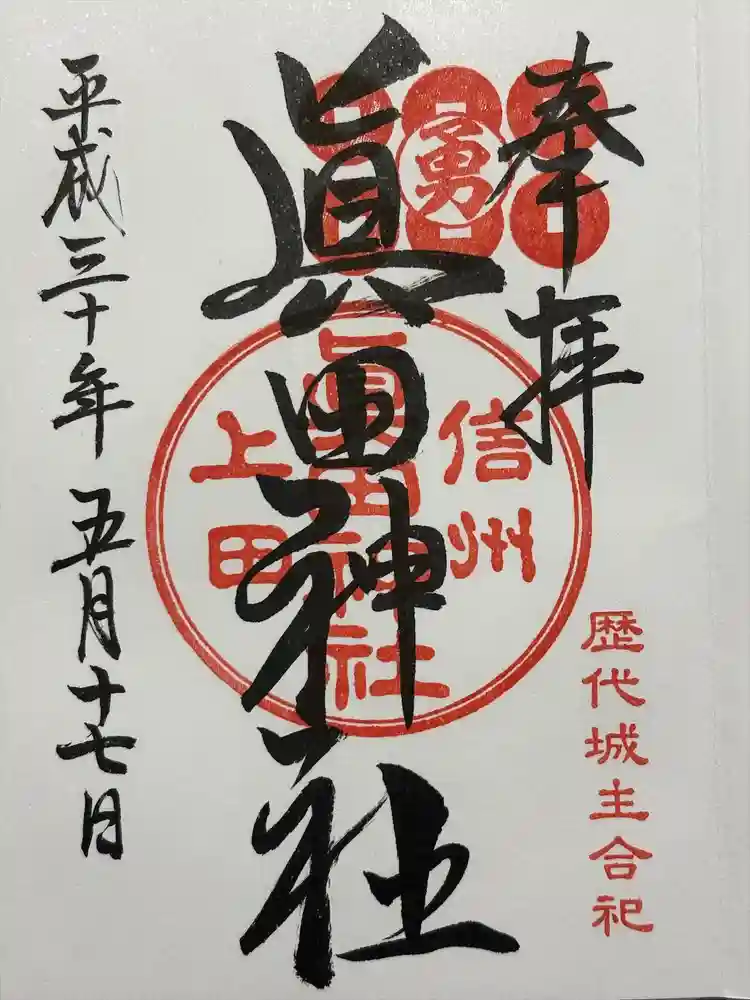 奉拝
勇
歴代城主合祀
眞田神社
信州
眞田神社
上田
平成三十年五月十七日